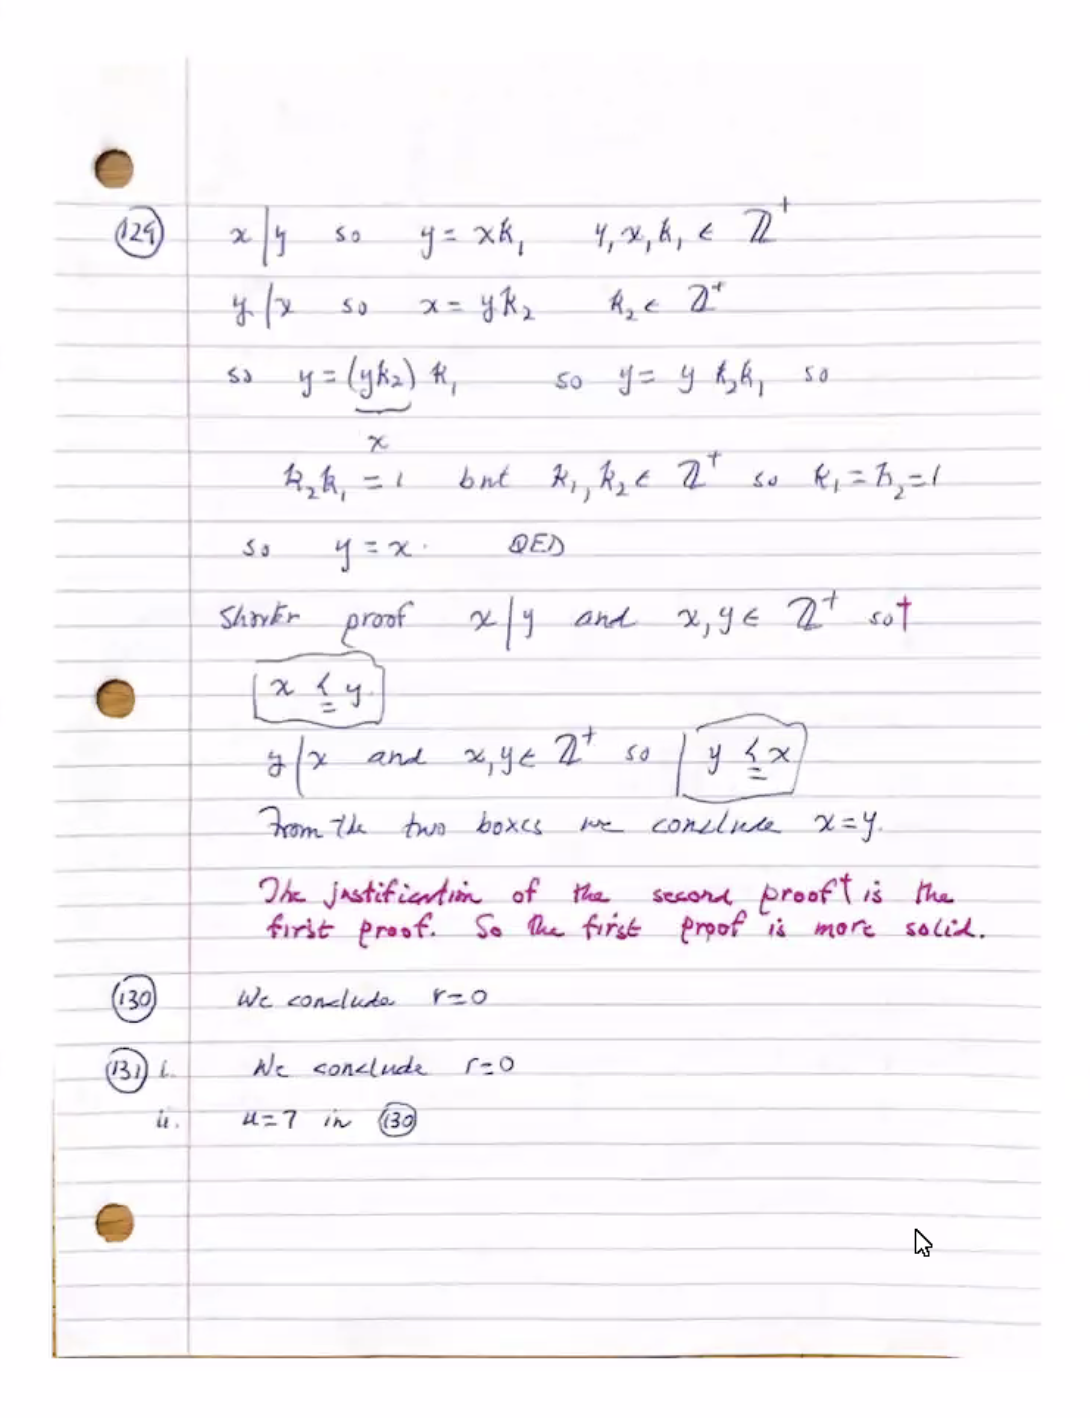 (129) x|y so y = xk₁ y, x, k₁ ∈ ℤ⁺
y|x so x = yk₂ k₂ ∈ ℤ⁺
so y = (yk₂) k₁ so y = y k₂k₁ so
x
k₂k₁ = 1 but k₁, k₂ ∈ ℤ⁺ so k₁ = k₂ = 1
so y = x. QED
Shorter proof x|y and x, y ∈ ℤ⁺ so†
x ≤ y.
y|x and x, y ∈ ℤ⁺ so y ≤ x
From the two boxes we conclude x = y.
The justification of the second proof† is the
first proof. So the first proof is more solid.
(130) We conclude r = 0
(131) i. We conclude r = 0
ii. u = 7 in (130)